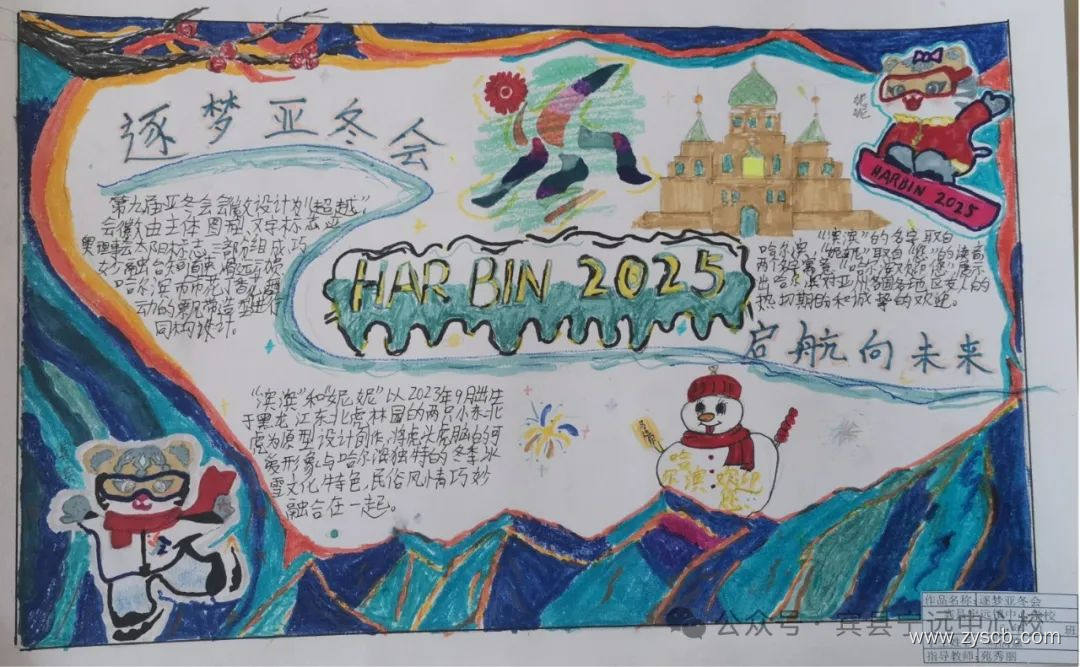 逐梦亚冬会
妮妮
HARBIN 2025
第九届亚冬会会徽设计为"超越",
会徽由主体图形、汉字标志及
奥理事会太阳标志三部分组成,巧
妙融合短道速滑运动员、
哈尔滨市市花丁香花与舞
动的飘带造型进行
同构设计。
HARBIN 2025
"滨滨"的名字取自
哈尔滨,"妮妮"取自"您"的读音
两个名字寓意"哈尔滨欢迎您",展示
出哈尔滨对亚洲各国各地区友人的
热切期盼和诚挚的欢迎。
启航向未来
"滨滨"和"妮妮"以2023年9月出生
于黑龙江东北虎林园的两只小东北
虎为原型设计创作,将虎头虎脑的可
爱形象与哈尔滨独特的冬季冰
雪文化特色,民俗风情巧妙
融合在一起。
哈
尔滨欢迎
您
作品名称:逐梦亚冬会
宾县宁远镇中心学校
班
指导教师:苑秀丽
公众号·宾县宁远中心校
www.zyscb.com